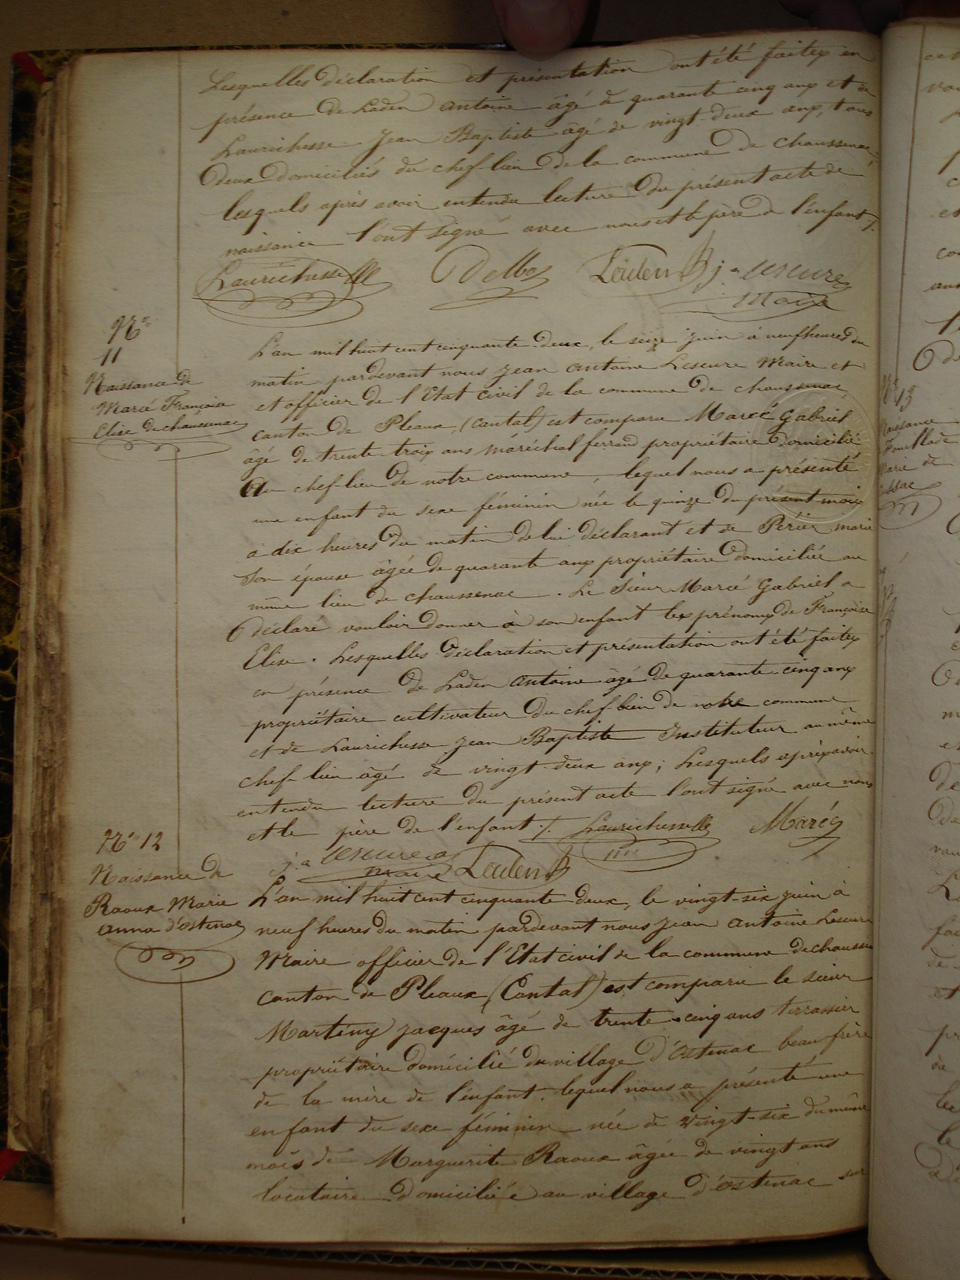 Lesquelles déclaration et présentation ont été faites en
présence de Laden Antoine âgé de quarante cinq ans et de
Laurichesse Jean Baptiste âgé de vingt deux ans, tous
deux domiciliés du chef-lieu de la commune de chaussenac,
lesquels après avoir entendu lecture du présent acte de
naissance l'ont signé avec nous et le père de l'enfant ./.
Laurichesse Delbos j a Lescure
maire
N°
11
Naissance de
Marcé Françoise
Elise de chaussenac
L'an mil huit cent cinquante deux, le seize juin à neuf heures du
matin pardevant nous Jean Antoine Lescure Maire et
et officier de l'Etat civil de la commune de chaussenac
canton de Pleaux (Cantal) est comparu Marcé Gabriel
âgé de trente trois ans maréchal ferrand propriétaire domicilié
au chef-lieu de notre commune, lequel nous a présenté
une enfant du sexe féminin née le quinze du présent mois
à dix heures du matin de lui déclarant et de Périer marie
son épouse âgée de quarante ans propriétaire domiciliée au
même lieu de chaussenac. Le Sieur Marcé Gabriel a
déclaré vouloir donner à son enfant les prénoms de Françoise
Elise. Lesquelles déclaration et présentation ont été faites
en présence de Laden Antoine âgé de quarante cinq ans
propriétaire cultivateur du chef lieu de notre commune
et de Laurichesse Jean Baptiste Instituteur au même
chef lieu âgé de vingt-deux ans; Lesquels après avoir
entendu lecture du présent acte l'ont signé avec nous
et le père de l'enfant ./. Laurichesse Marcé
j a Lescure
maire
N° 12
Naissance de
Raoux Marie
anna d'ostenac
L'an mil huit cent cinquante deux, le vingt-six juin à
neuf heures du matin pardevant nous Jean Antoine Lescure
Maire officier de l'Etat civil de la commune de chaussenac
canton de Pleaux (Cantal) est comparu le sieur
Martiny Jacques âgé de trente-cinq ans terrassier
propriétaire domicilié du village d'Ostenac beau frère
de la mère de l'enfant. lequel nous a présenté une
enfant du sexe féminin née de vingt-six du même
mois de Marguerite Raoux âgée de vingt ans
locataire domiciliée au village d'Ostenac sur